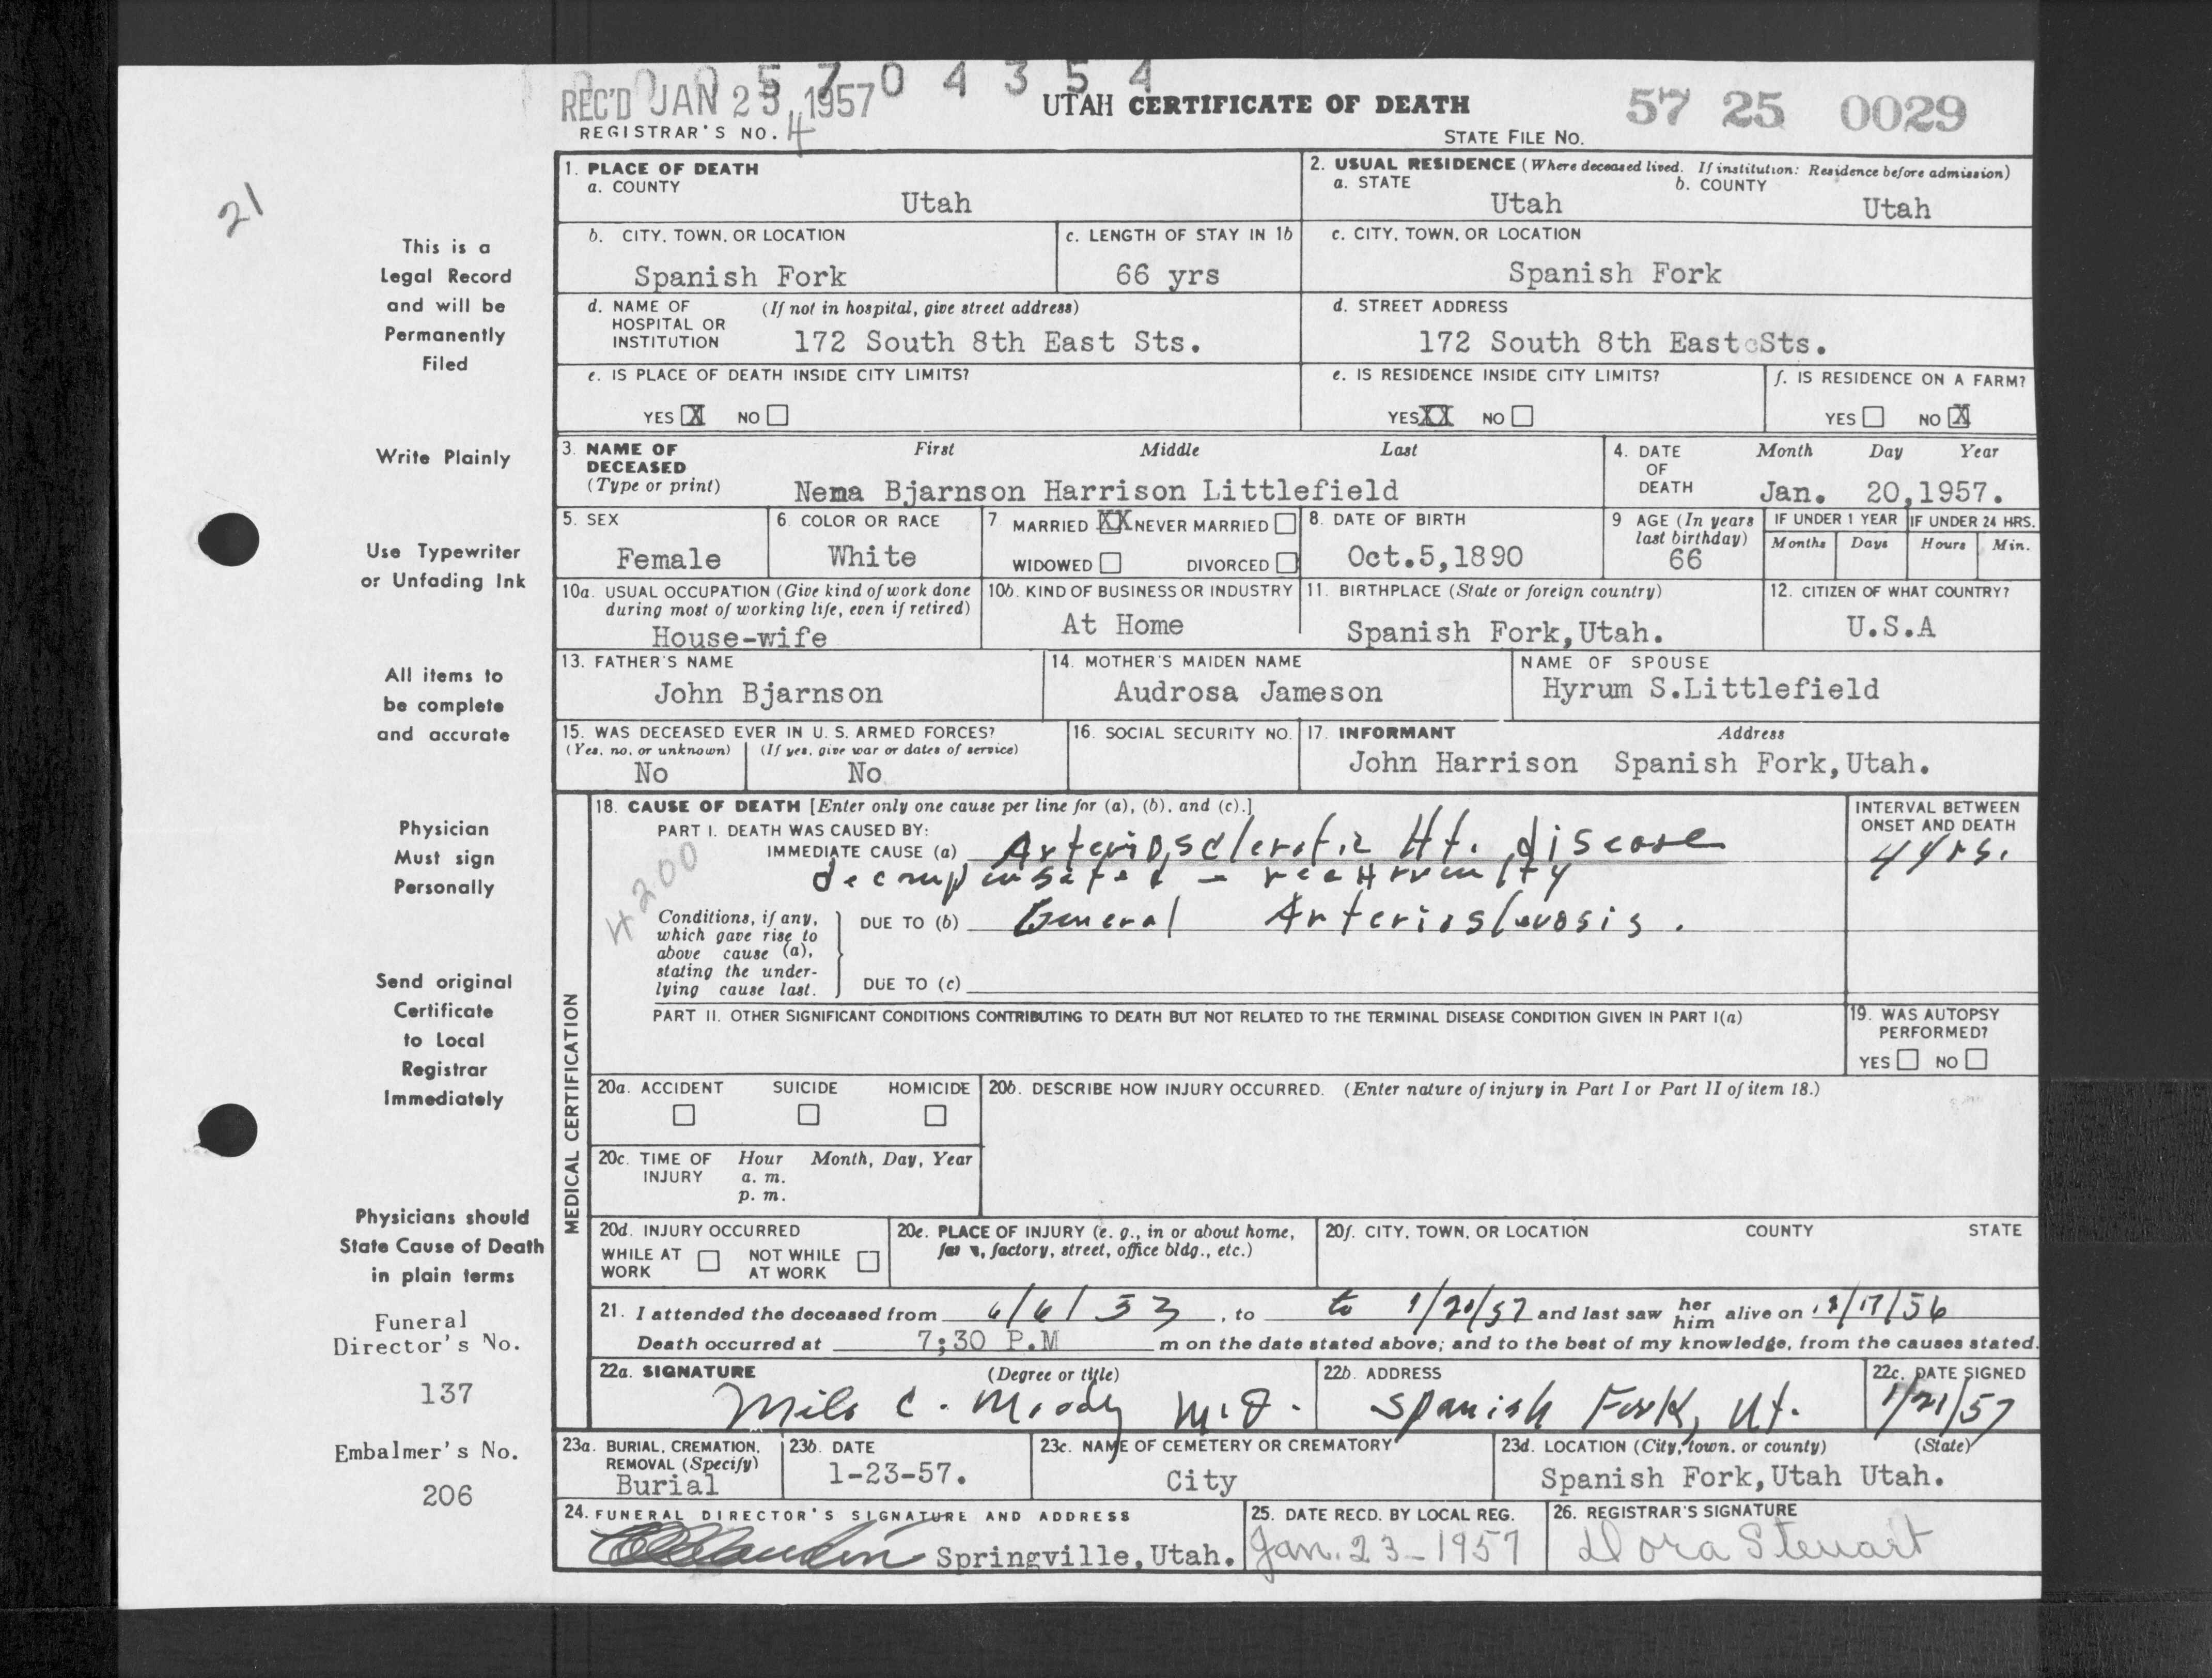 0 0 0 5 7 0 4 3 5 4
REC'D JAN 23 1957
UTAH CERTIFICATE OF DEATH
57 25 0029
REGISTRAR'S NO. 4
STATE FILE NO.
21
1. PLACE OF DEATH
a. COUNTY
Utah
2. USUAL RESIDENCE (Where deceased lived. If institution: Residence before admission)
a. STATE b. COUNTY
Utah Utah
b. CITY, TOWN, OR LOCATION
Spanish Fork
c. LENGTH OF STAY IN 1b
66 yrs
c. CITY, TOWN, OR LOCATION
Spanish Fork
d. NAME OF (If not in hospital, give street address)
HOSPITAL OR
INSTITUTION 172 South 8th East Sts.
d. STREET ADDRESS
172 South 8th East Sts.
e. IS PLACE OF DEATH INSIDE CITY LIMITS?
YES X NO
e. IS RESIDENCE INSIDE CITY LIMITS?
YES XX NO
f. IS RESIDENCE ON A FARM?
YES NO X
3. NAME OF First Middle Last
DECEASED
(Type or print) Nema Bjarnson Harrison Littlefield
4. DATE Month Day Year
OF
DEATH Jan. 20,1957.
5. SEX
Female
6 COLOR OR RACE
White
7 MARRIED XX NEVER MARRIED
WIDOWED DIVORCED
8. DATE OF BIRTH
Oct.5,1890
9 AGE (In years
last birthday)
66
IF UNDER 1 YEAR IF UNDER 24 HRS.
Months Days Hours Min.
10a. USUAL OCCUPATION (Give kind of work done
during most of working life, even if retired)
House-wife
10b. KIND OF BUSINESS OR INDUSTRY
At Home
11. BIRTHPLACE (State or foreign country)
Spanish Fork,Utah.
12. CITIZEN OF WHAT COUNTRY?
U.S.A
13. FATHER'S NAME
John Bjarnson
14. MOTHER'S MAIDEN NAME
Audrosa Jameson
NAME OF SPOUSE
Hyrum S.Littlefield
15. WAS DECEASED EVER IN U. S. ARMED FORCES?
(Yes, no, or unknown) (If yes, give war or dates of service)
No No
16. SOCIAL SECURITY NO.
17. INFORMANT Address
John Harrison Spanish Fork,Utah.
MEDICAL CERTIFICATION
18. CAUSE OF DEATH [Enter only one cause per line for (a), (b), and (c).]
PART I. DEATH WAS CAUSED BY:
IMMEDIATE CAUSE (a) Arteriosclerotic Ht. disease
decompensated -
4200
INTERVAL BETWEEN
ONSET AND DEATH
4 yrs.
Conditions, if any,
which gave rise to
above cause (a),
stating the under-
lying cause last.
DUE TO (b) General Arterioslerosis.
DUE TO (c)
PART II. OTHER SIGNIFICANT CONDITIONS CONTRIBUTING TO DEATH BUT NOT RELATED TO THE TERMINAL DISEASE CONDITION GIVEN IN PART I(a)
19. WAS AUTOPSY
PERFORMED?
YES NO
20a. ACCIDENT SUICIDE HOMICIDE
20b. DESCRIBE HOW INJURY OCCURRED. (Enter nature of injury in Part I or Part II of item 18.)
20c. TIME OF Hour Month, Day, Year
INJURY a. m.
p. m.
20d. INJURY OCCURRED
WHILE AT NOT WHILE
WORK AT WORK
20e. PLACE OF INJURY (e. g., in or about home,
factory, street, office bldg., etc.)
20f. CITY, TOWN, OR LOCATION COUNTY STATE
21. I attended the deceased from 6/6/53, to to 1/20/57 and last saw her him alive on 12/17/56
Death occurred at 7;30 P.M m on the date stated above; and to the best of my knowledge, from the causes stated.
22a. SIGNATURE (Degree or title)
Milo C. Moody M.D.
22b. ADDRESS
Spanish Fork, Ut.
22c. DATE SIGNED
1/21/57
23a. BURIAL, CREMATION,
REMOVAL (Specify)
Burial
23b. DATE
1-23-57.
23c. NAME OF CEMETERY OR CREMATORY
City
23d. LOCATION (City, town, or county) (State)
Spanish Fork,Utah Utah.
24. FUNERAL DIRECTOR'S SIGNATURE AND ADDRESS
Springville,Utah.
25. DATE RECD. BY LOCAL REG.
Jan. 23-1957
26. REGISTRAR'S SIGNATURE
Dora Stewart
This is a
Legal Record
and will be
Permanently
Filed
Write Plainly
Use Typewriter
or Unfading Ink
All items to
be complete
and accurate
Physician
Must sign
Personally
Send original
Certificate
to Local
Registrar
Immediately
Physicians should
State Cause of Death
in plain terms
Funeral
Director's No.
137
Embalmer's No.
206